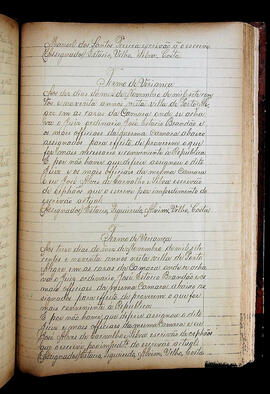 Manoel dos Santos Pereira escrivão q escrevi
Assignados Estacio, Velho, Silva, Costa
Termo de Veriança
Aos dez dias do mes de Novembro de mil e sete cen
tos e noventa annos nesta villa de Porto Ale
gre em as casas da Camara onde se acha
va o Juiz ordinario José Estacio Brandão e os
os mais officiaes da mesma Camara abaixo
assignados para effeito de proverem o que
for mais necessario e conveniente a Republica
E por não haver que deferir assignou o dito
Juiz e os mais officiaes da mesma Camara
e eu José Alves de Carvalho e Silva escrivão
de orphãos que o escrevi por impedimento do
escrivão actual
Assignados Estacio, Siqueira, Alvim, Velho, Costa
Termo de Veriança
Aos dias do mes de Novembro, de mil e sete
centos e noventa annos nesta villa de Porto
Alegre em as casas da Camara onde se acha
va o Juiz ordinario, José Estacio Brandão e os
mais officiaes da mesma Camara abaixo as
signados para effeito de proverem o que for
mais conveniente a Republica
E por não haver que deferir assignou o dito
Juiz e os mais officiaes da mesma Camara e eu
José Alves de Carvalho e Silva escrivão de orphãos
que o escrevi por impedto do escrivão actual
Assignados Estacio, Siqueira, Alvim, Velho, Costa